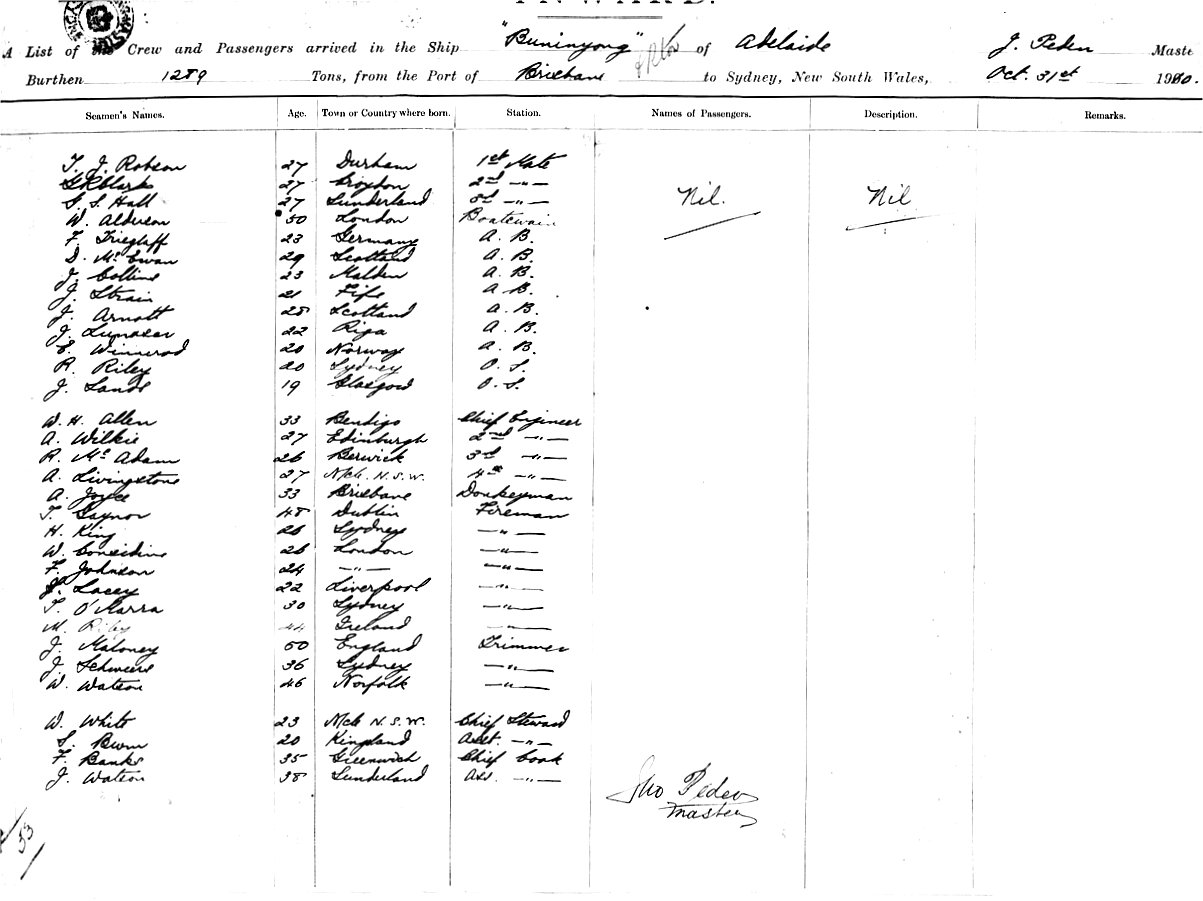 INWARD.
A List of the Crew and Passengers arrived in the Ship "Buninyong" of Adelaide J. Peden Maste
Burthen 1289 Tons, from the Port of Brisbane to Sydney, New South Wales, Oct. 31st 1900.
Seamen's Names. Age. Town or Country where born. Station. Names of Passengers. Description. Remarks.
T. J. Robson 27 Durham 1st Mate
G R Clark 27 Croydon 2nd -"-
G. S. Hall 27 Sunderland 3d -"- Nil. Nil
W. Alderson 50 London Boatswain
F. Trieglaff 23 Germany A. B.
D. McEwan 29 Scotland A. B.
J. Collins 23 Malden A. B.
J. Strain 21 Fife A. B.
J. Arnott 28 Scotland A. B.
J. 22 Riga A. B.
E. 20 Norway A. B.
R. Riley 20 Sydney O. S.
J. Sands 19 Glasgow O. S.
W. H. Allen 33 Bendigo Chief Engineer
A. Wilkie 27 Edinburgh 2nd -"-
R. McAdam 26 Berwick 3rd -"-
A. Livingstone 27 N/cle. N.S.W. 4th -"-
A. Joyce 33 Brisbane Donkeyman
T. Gaynor 48 Dublin Fireman
H. King 26 Sydney -"-
W. Considine 26 London -"-
F. Johnson 24 -"- -"-
Lacey 22 Liverpool -"-
T. O'Marra 30 Sydney -"-
M. Riley 44 Ireland -"-
J. Maloney 50 England Trimmer
J. Schweers 36 Sydney -"-
W. Watson 46 Norfolk -"-
W. White 23 N/cle N.S.W. Chief Steward
S. 20 Kingland Asst. -"-
F. Banks 35 Greenwich Chief Cook
J. Watson 38 Sunderland Ass. -"-
Jno Peden
Master
53